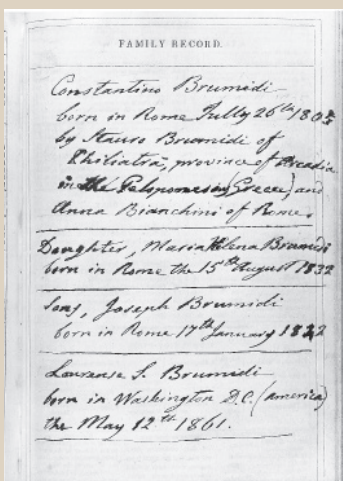 FAMILY RECORD.
Constantino Brumidi
born in Rome Jully 26th 1805
by Stauro Brumidi of
Philiatrà, province of Arcadia
in the Peloponesus (Greece) and
Anna Bianchini of Rome.
Doughter, Maria Helena Brumidi
born in Rome the 15th August 1832
Son, Joseph Brumidi
born in Rome 17th January
Laurense S. Brumidi
born in Washington D.C. (America)
the May 12th 1861.